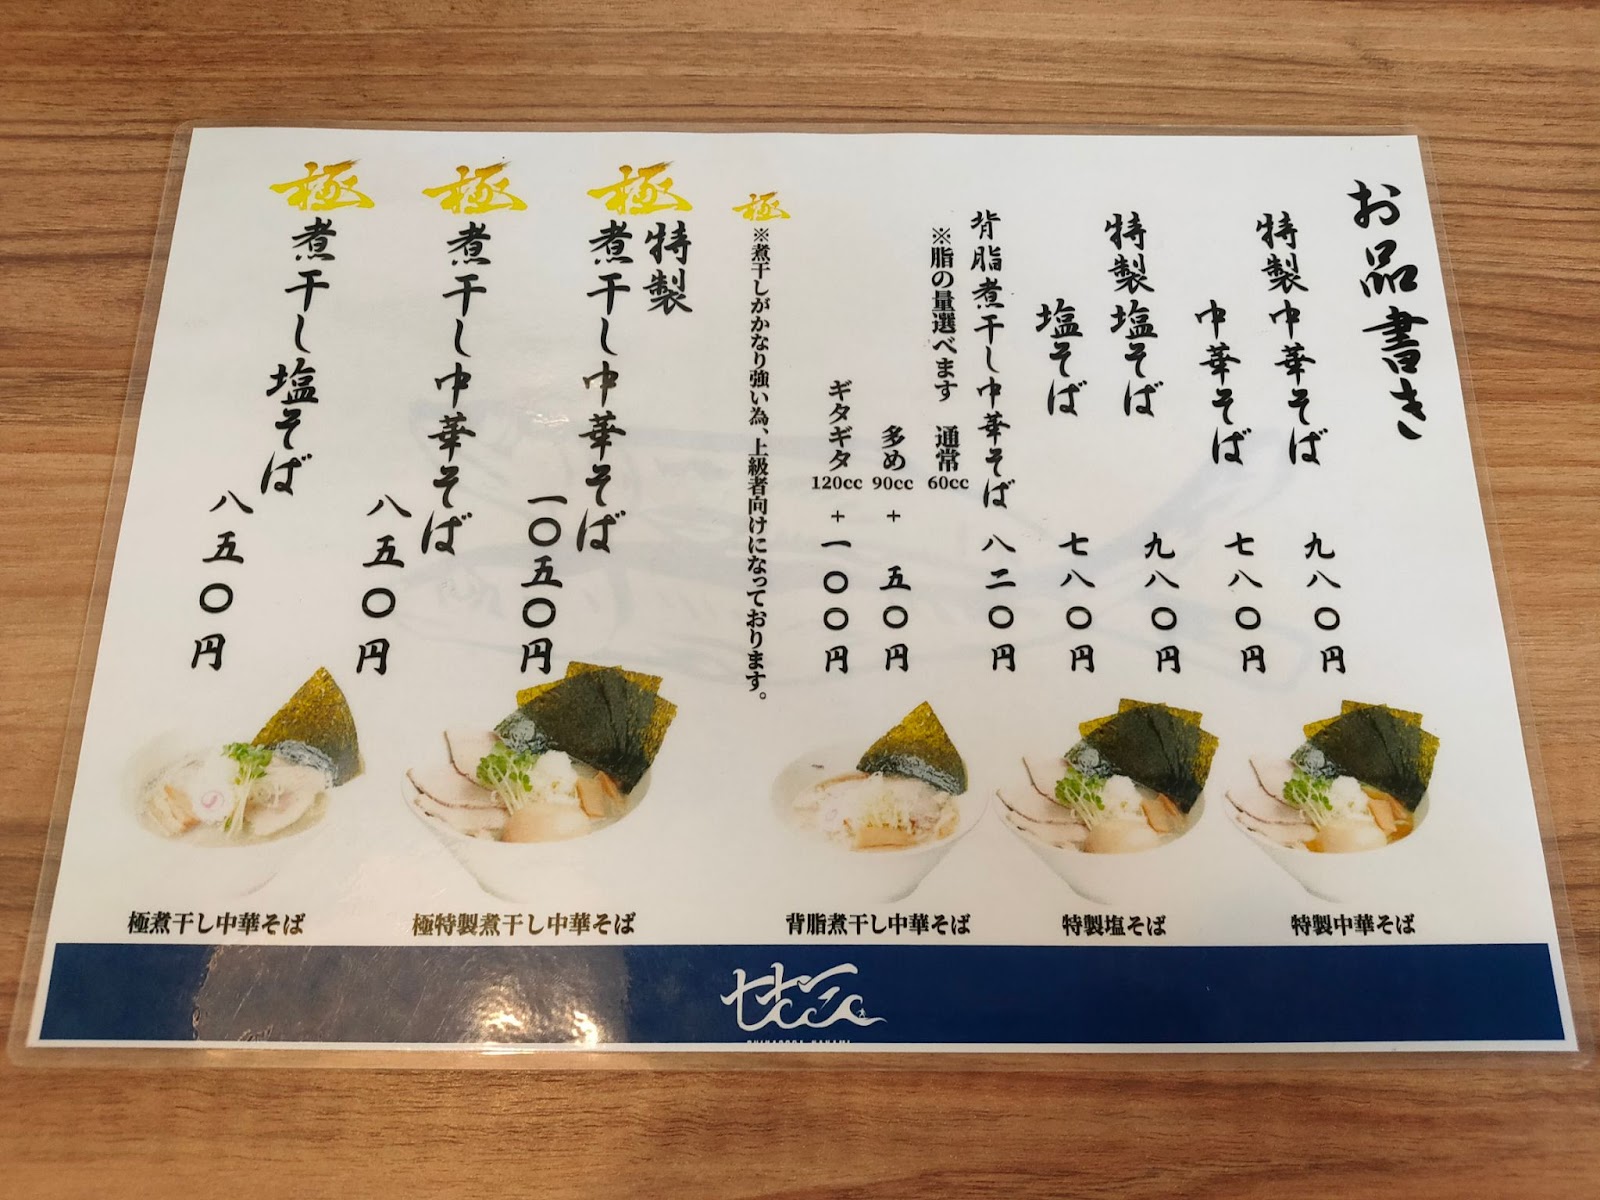 お品書き
特製中華そば 九八〇円
中華そば 七八〇円
特製塩そば 九八〇円
塩そば 七八〇円
背脂煮干し中華そば 八二〇円
※脂の量選べます 通常 60cc
多め 90cc + 五〇円
ギタギタ 120cc + 一〇〇円
極 ※煮干しがかなり強い為、上級者向けになっております。
極 特製
煮干し中華そば 一〇五〇円
極 煮干し中華そば 八五〇円
極 煮干し塩そば 八五〇円
極煮干し中華そば
極特製煮干し中華そば
背脂煮干し中華そば
特製塩そば
特製中華そば